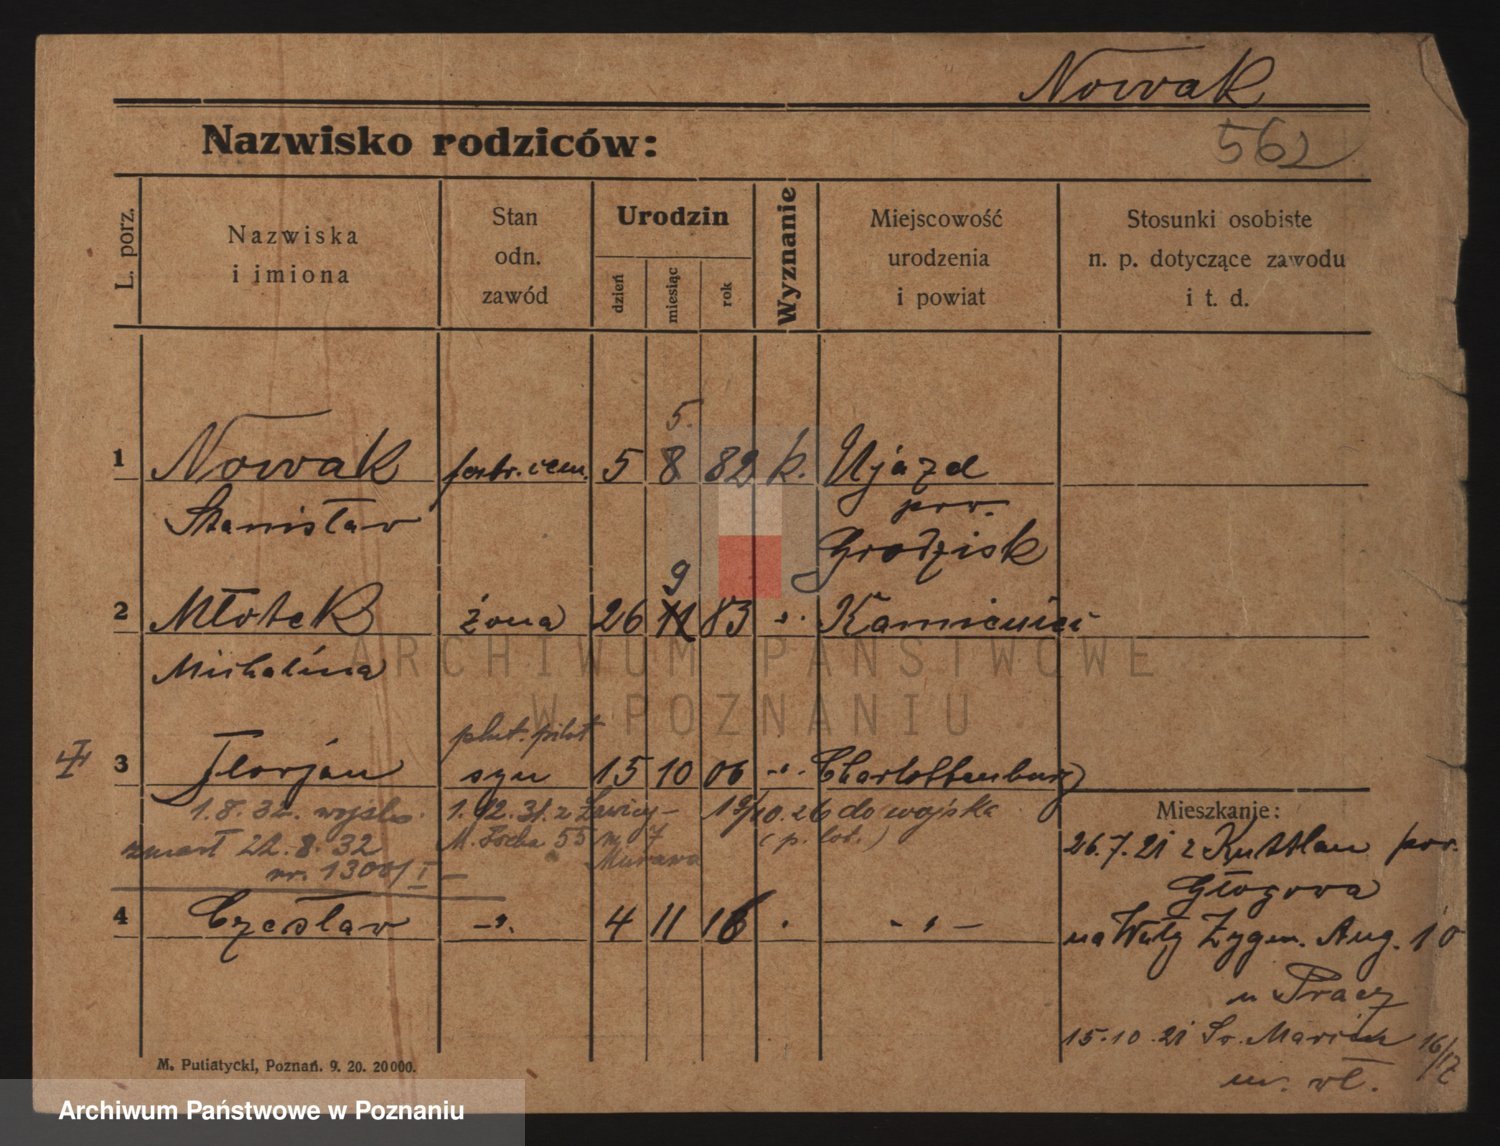 Nowak
562
Nazwisko rodziców:
L. porz.
Nazwiska
i imiona
Stan
odn.
zawód
Urodzin
dzień
miesiąc
rok
Wyznanie
Miejscowość
urodzenia
i powiat
Stosunki osobiste
n. p. dotyczące zawodu
i t. d.
5.
1 Nowak 5 8 82 k. Ujazd
Stanisław pow.
Grodzisk
9
2 Młotek żona 26 11 83 Kamieniec
Michalina
plut. pilot
3 Florjan syn 15 10 06 Charlottenburg
1.8.32. wojsko. 1.12.31. z Ławicy - 10.26 do wojska
zmarł 22.8.32 M. Focha 55 m 7 (p. lot.)
nr. 1300/I Murawa
4 Czesław 4 11 16
Mieszkanie:
26.7.21 z pow.
Głogowa
na Wały Zygm. Aug. 10
u Pracz
15.10.21 Św. Marcin 16/17
m. wł.
M. Putiatycki, Poznań. 9. 20. 20000.
ARCHIWUM PAŃSTWOWE
W POZNANIU
Archiwum Państwowe w Poznaniu